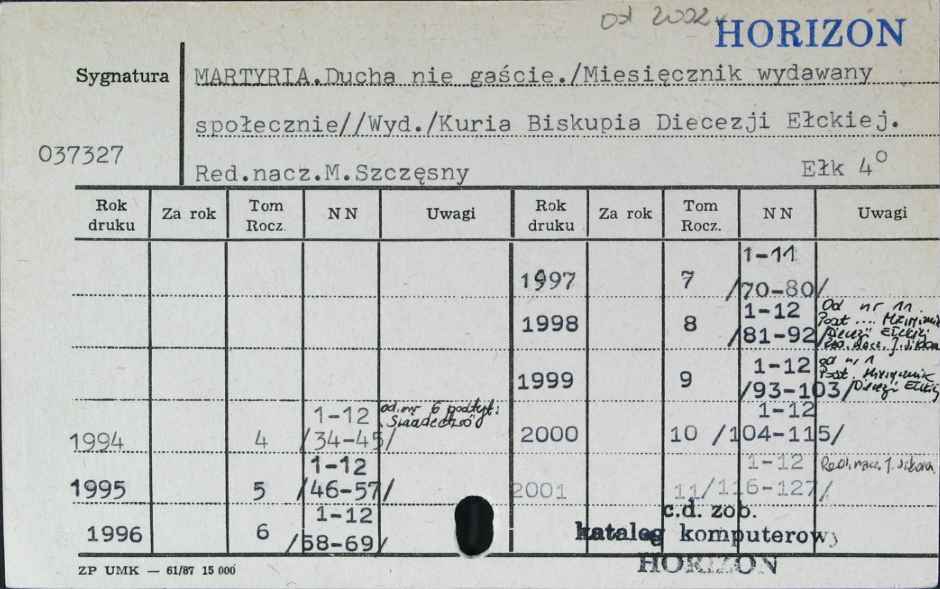 od 2002
HORIZON
Sygnatura
MARTYRIA.Ducha nie gaście./Miesięcznik wydawany
społecznie//Wyd./Kuria Biskupia Diecezji Ełckiej.
037327
Red.nacz.M.Szczęsny Ełk 4°
Rok druku Za rok Tom Rocz. NN Uwagi Rok druku Za rok Tom Rocz. NN Uwagi
1994 4 1-12 /34-45/ od nr 6 podtyt:
1995 5 1-12 /46-57/
1996 6 1-12 /58-69/
1997 7 1-11 /70-80/
1998 8 1-12 /81-92/ Od nr 11 Podt ... Diecezji Ełckiej
1999 9 1-12 /93-103/ od nr 1 Podt. Miesięcznik Diecezji Ełckiej
2000 10 1-12 /104-115/
2001 11 1-12 /116-127/ Red. nacz. J. Sikora
c.d. zob.
katalog komputerowy
HORIZON
ZP UMK — 61/87 15 000